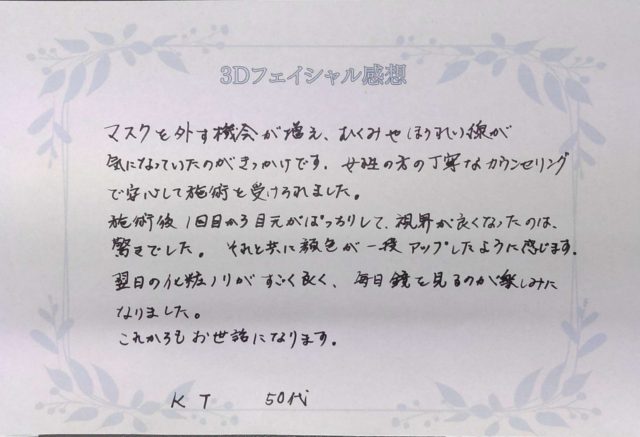 3Dフェイシャル感想
マスクを外す機会が増え、むくみやほうれい線が
気になっていたのがきっかけです。女性の方の丁寧なカウンセリング
で安心して施術を受けられました。
施術後1回目から目元がぱっちりして、視界が良くなったのは、
驚きでした。それと共に顔色が一段アップしたように感じます。
翌日の化粧ノリがすごく良く、毎日鏡を見るのが楽しみに
なりました。
これからもお世話になります。
KT 50代